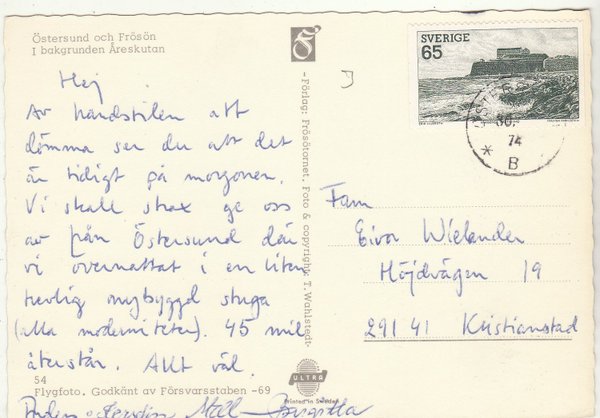 Östersund och Frösön
I bakgrunden Åreskutan
Hej
Av handstilen att
dömma ser du att det
är tidigt på morgonen.
Vi skall strax ge oss
av från Östersund där
vi övernattat i en liten
trevlig nybyggd stuga
(alla moderniteter). 45 mil
återstår. Allt väl.
54
Flygfoto. Godkänt av Försvarsstaben -69
Birgitta
- Förlag: Frösötornet. Foto & copyright: T. Wahlstedt.
ULTRA
Printed in Sweden
SVERIGE
65
30.
74
* B
Fam
Eivor Wielander
Höjdvägen 19
291 41 Kristianstad